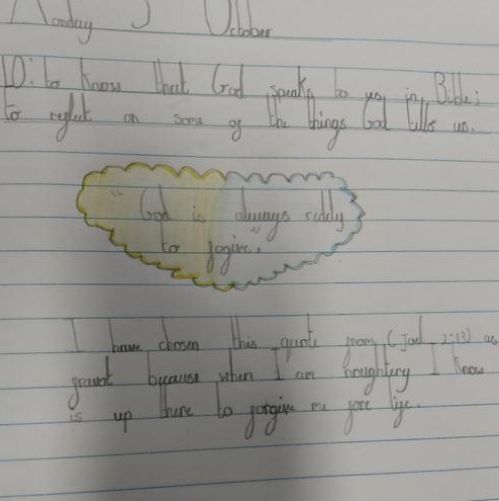 Monday 3 October
LO: to know that God speaks to us in Bible;
to reflect on some of the things God tells us.
" God is always reddy
to forgive."
I have chosen this quote from (Joel 2:13) as
because when I am noughtery I know
is up there to forgive me fore life.